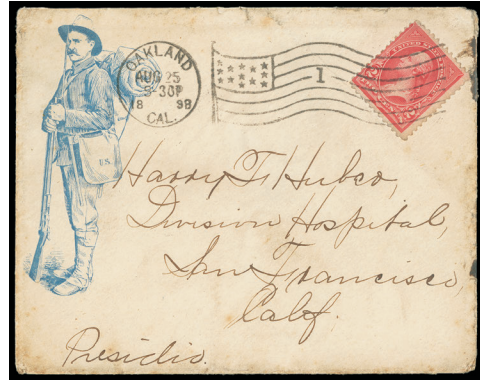 OAKLAND
AUG 25
5-30P
18 98
CAL.
1
U.S.
Harry T. Hubco,
Division Hospital,
San Francisco,
Calf.
Presidio.